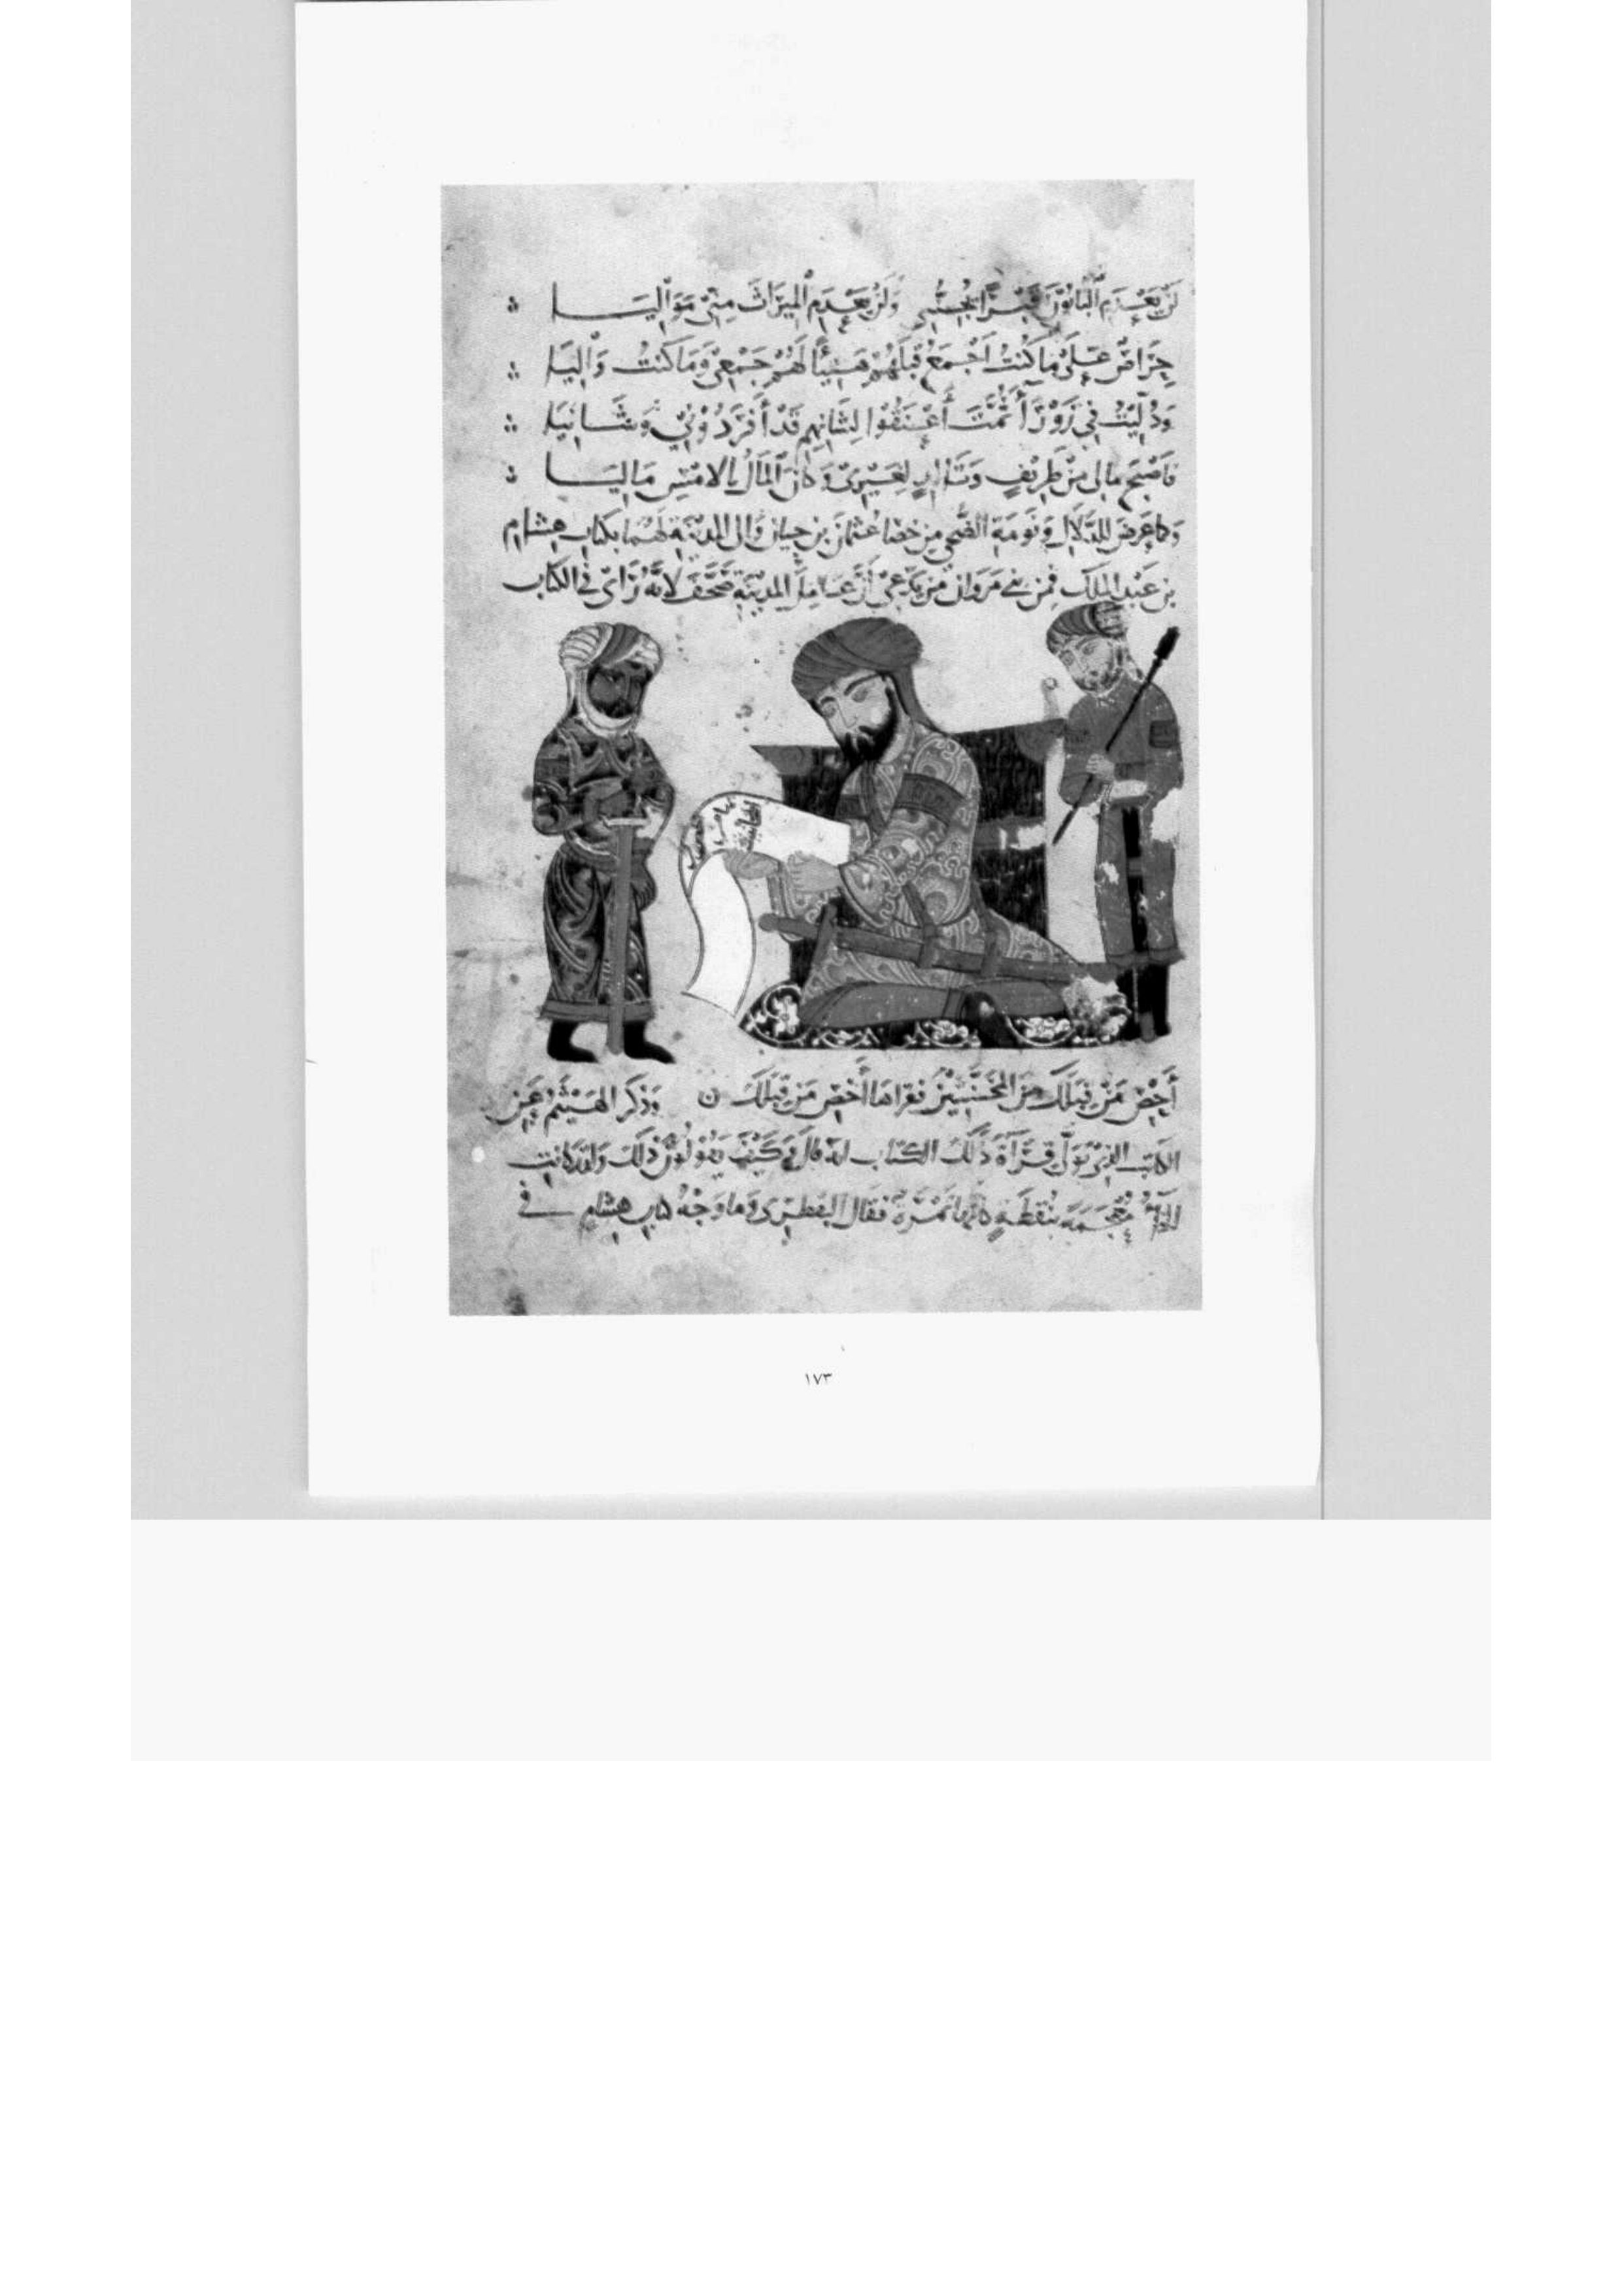 لَن يَعْدَمِ البَانُونَ قَبْرًا لِجُثَّتِي وَلَن يَعْدَمِ المِيرَاثَ مِنِّي مَوَاليَا
حِرَاصٌ عَلَى مَا كُنْتُ أَجْمَعُ قَبْلَهُمْ هَنِيئًا لَهُمْ جَمْعِي وَمَا كُنتُ وَاليَا
وَدُلِّيتُ فِي زَوْرَاءَ ثُمَّتَ أَعْنَقُوا لِشَانِهِمِ قَدْ أَفْرَدُوْنِي وَشَانِيَا
فَأَصْبَحَ مالى مِنْ طَرِيْفٍ وَتَالِدٍ لِغَيْرِى وَكَانَ المَالُ بالامْسِ مَاليَا
وما عرضَ للدَّلَالِ وَنَومَةِ الضُّحى مِن خصَا عُثمانَ بن حيان وَالى المدينَةِ لَهُمَا بكتابِ هشام
بن عَبْدِ الملَكِ فمن بنى مَرَوان مَن يَدَّعِى أَنَّ عَامِلَ المدينَةِ صَحَّفَ لانَّهُ رَاى فى الكتاب
أَحْصِ مَنْ قِبَلَكَ مِنَ المُخَنَّثِيْنَ فقراها أَخْصِ مَن قِبَلَكَ ن وَذكَر الهَيْثَم عَن
الكاتب الذى تَوَلَّى قِرَآءَةَ ذَلكَ الكتاب انه قالَ كَيْفَ يَقُولُونَ ذلكَ وَلقد كانت
الحَآءُ مُعْجَمَةً بنُقْطَةٍ كانَّها تَمْرَةٌ فقال البَقطرى وَما وَجْهُ كتاب هشام فى
١٧٣